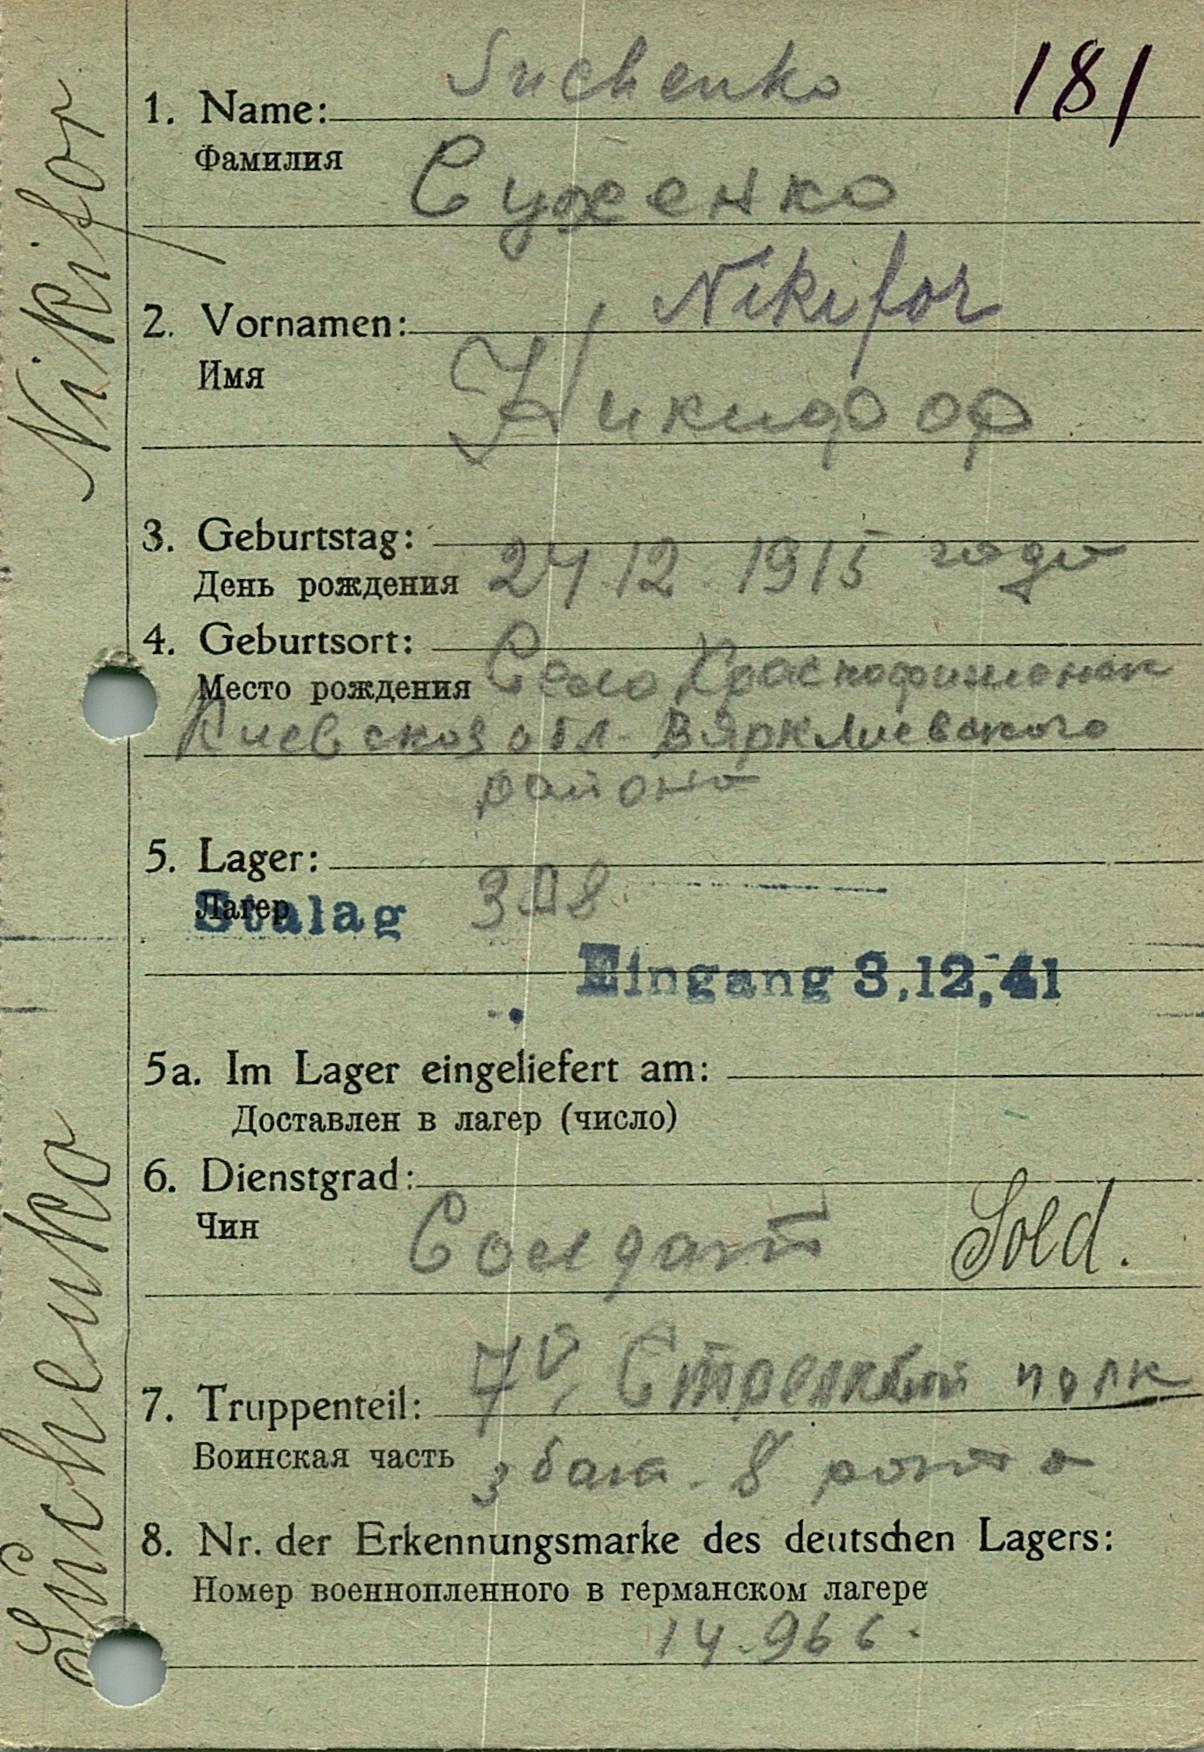 Suchenko
181
1. Name:
Фамилия
Суженко
Nikifor
2. Vornamen:
Имя
Никифор
3. Geburtstag:
День рождения 24 12. 1915 года
4. Geburtsort:
Место рождения Село
Киевской обл.
района
5. Lager:
Лагер
Stalag 308
Eingang 3.12.41
5a. Im Lager eingeliefert am:
Доставлен в лагер (число)
6. Dienstgrad:
Чин
Солдат Sold.
7. Truppenteil: 7й, Стрелковой полк
Воинская часть 3 бат. 8 рота
8. Nr. der Erkennungsmarke des deutschen Lagers:
Номер военнопленного в германском лагере
14.966.
Suchenko Nikifor